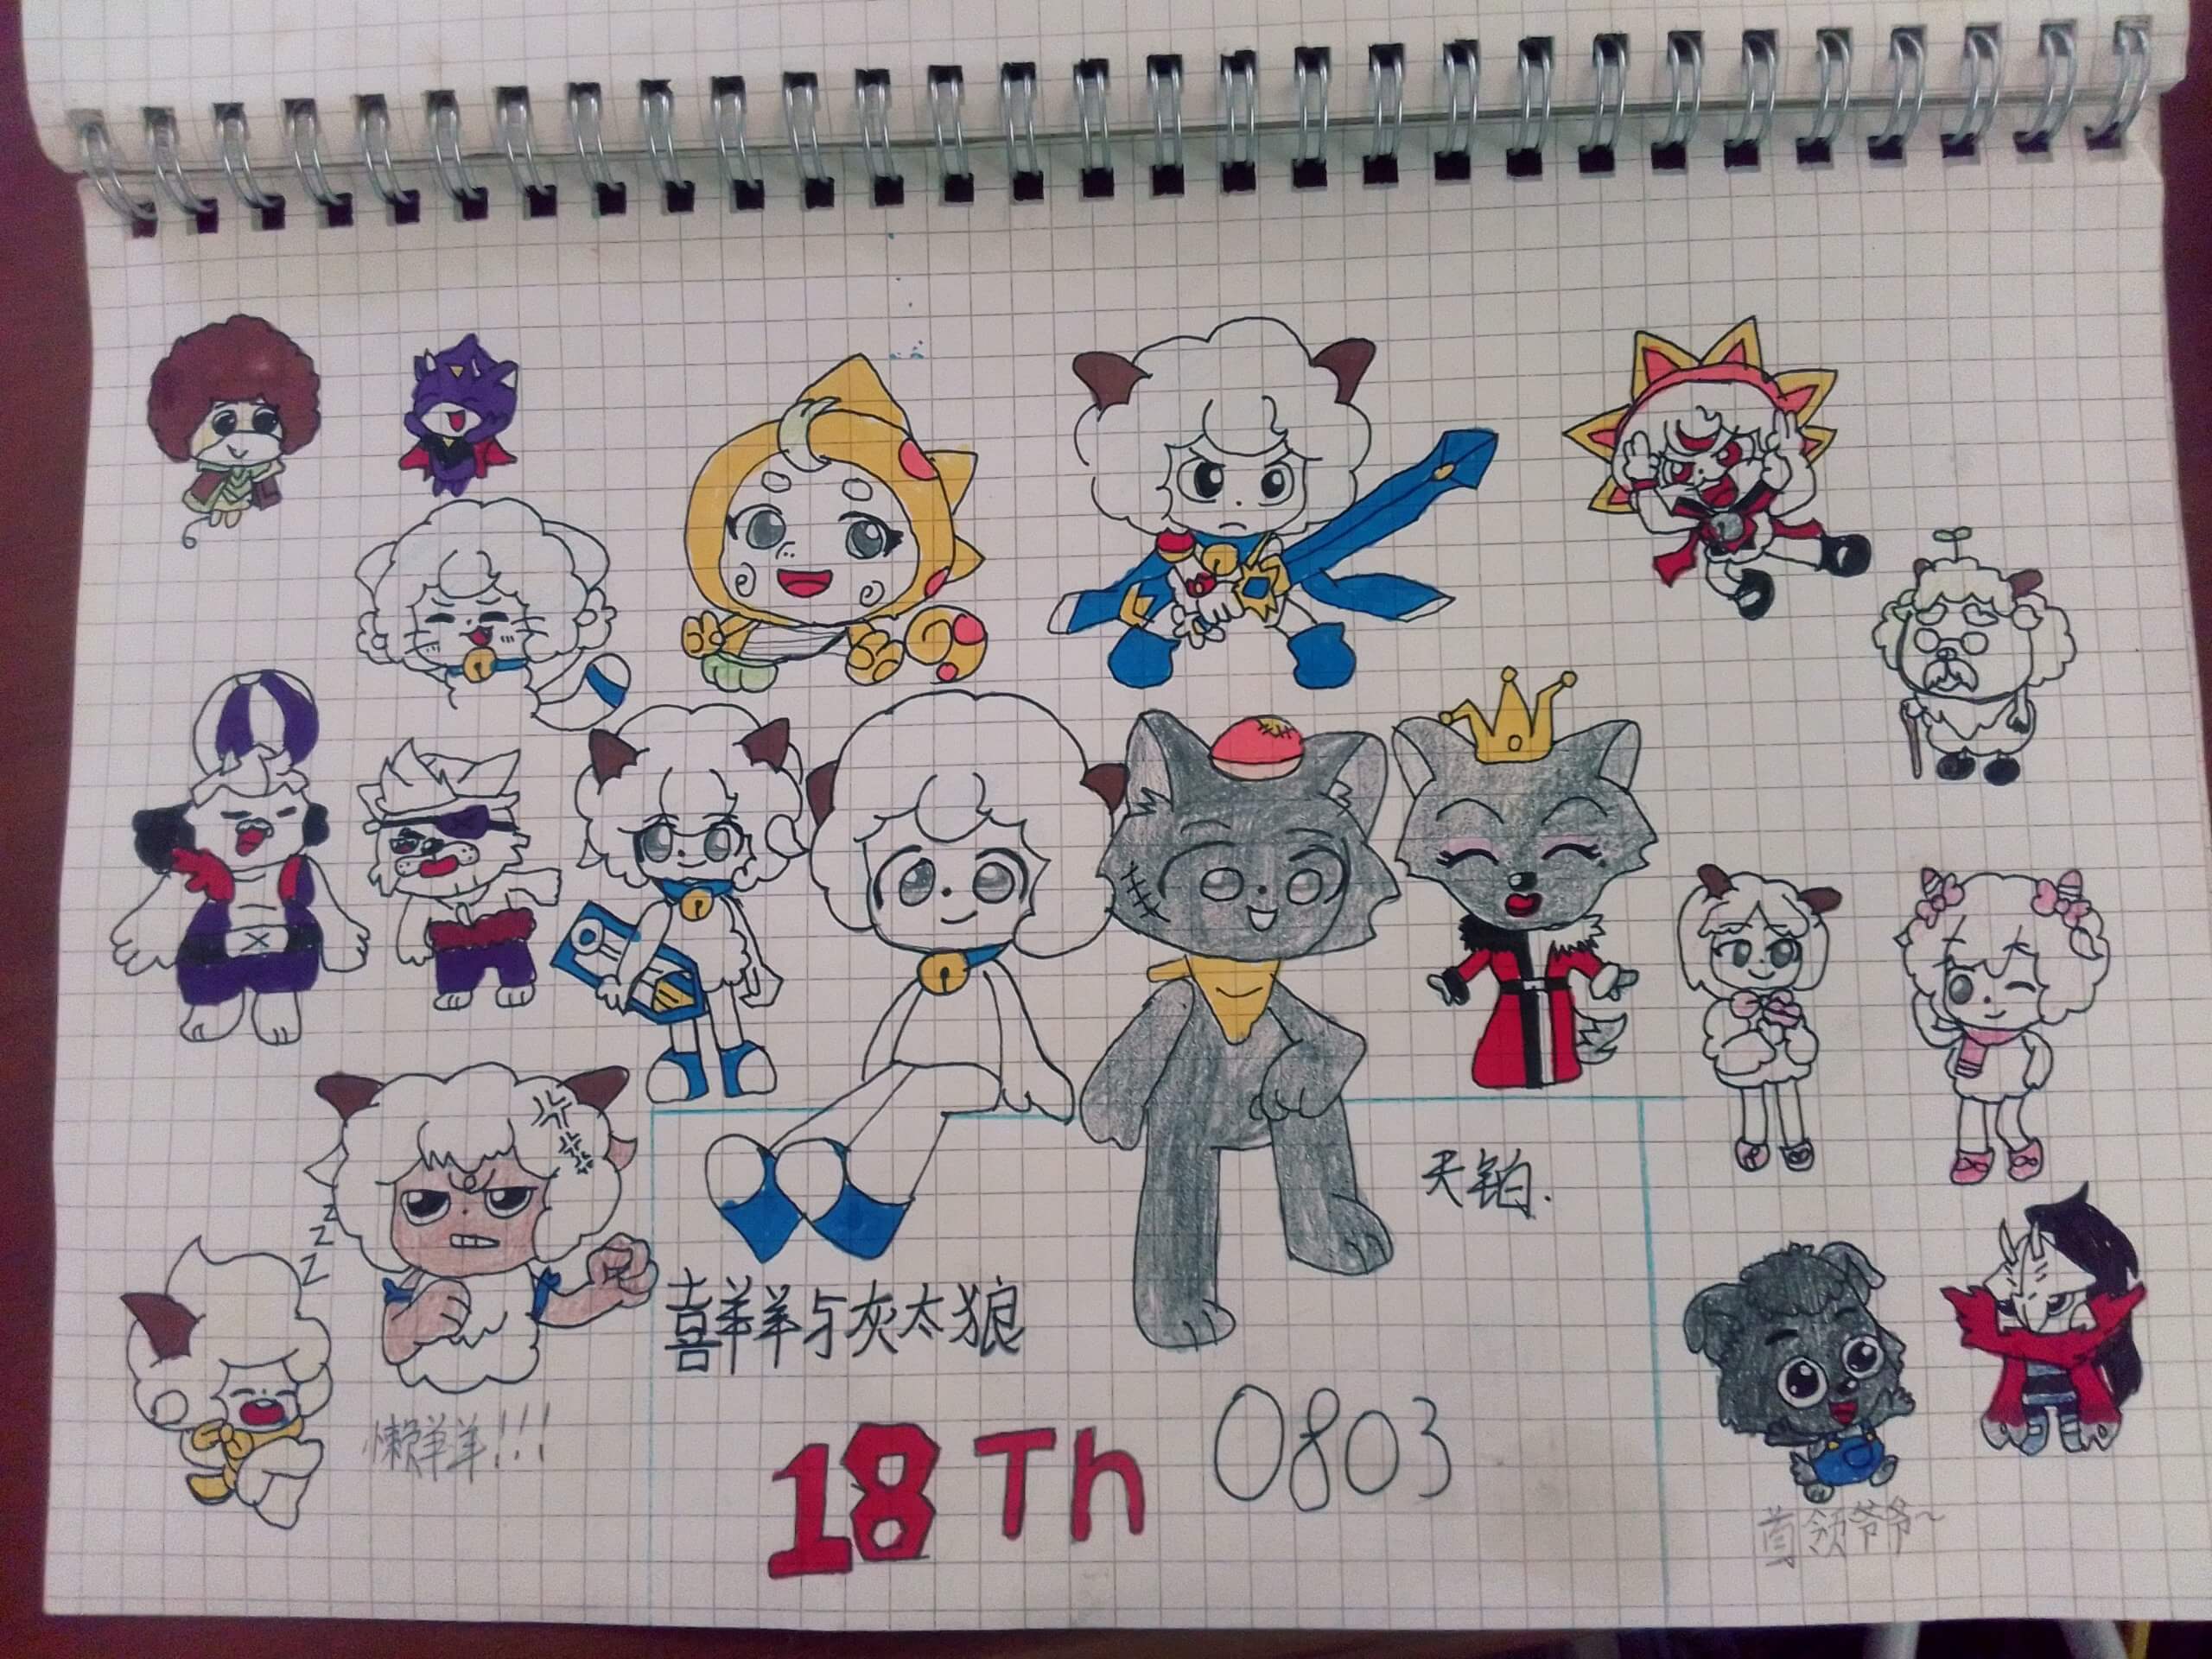 天铂.
Z
Z
Z
Z
喜羊羊与灰太狼
懒羊羊!!!
18Th 0803
首领爷爷~